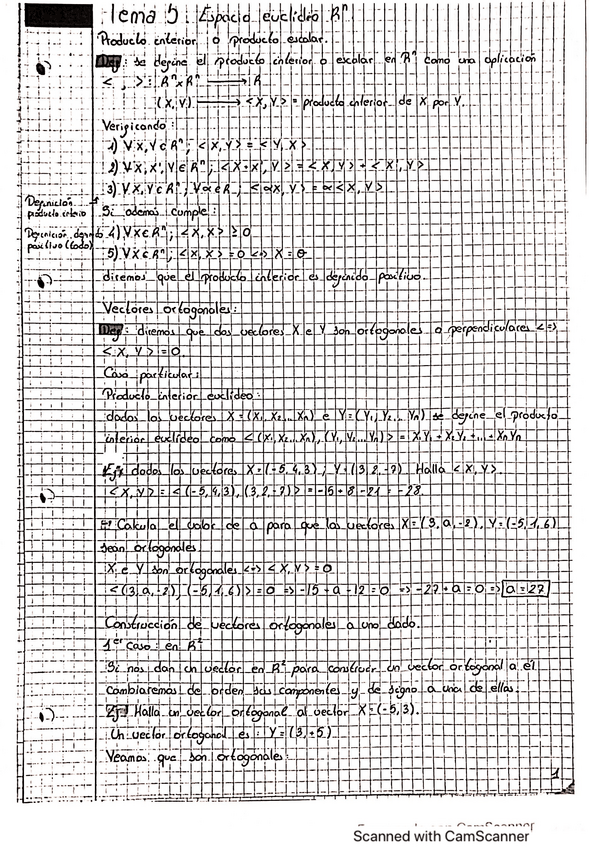 Tema 5: Espacio euclídeo Rⁿ
Producto interior o producto escalar.
Def: se define el producto interior o escalar en Rⁿ como una aplicación
< , >: Rⁿ x Rⁿ → R
(X, Y) → <X, Y> = producto interior de X por Y.
Verificando:
1) ∀ X, Y ∈ Rⁿ; <X, Y> = <Y, X>
2) ∀ X, X', Y ∈ Rⁿ; <X+X', Y> = <X, Y> + <X', Y>
3) ∀ X, Y ∈ Rⁿ; ∀ α ∈ R; <αX, Y> = α<X, Y>
Definición
producto interio
Si además cumple:
Definición definido
positivo (todo)
4) ∀ X ∈ Rⁿ; <X, X> ≥ 0
5) ∀ X ∈ Rⁿ; <X, X> = 0 <=> X = θ
diremos que el producto interior es definido positivo.
Vectores ortogonales:
Def: diremos que dos vectores X e Y son ortogonales o perpendiculares <=>
<X, Y> = 0
Caso particular:
Producto interior euclídeo:
dados los vectores X = (X₁, X₂... Xn) e Y = (Y₁, Y₂... Yn) se define el producto
interior euclídeo como <(X₁, X₂...Xn), (Y₁, Y₂...Yn)> = X₁Y₁ + X₂Y₂ + ... + XnYn
Ej: dados los vectores X = (-5, 4, 3); Y = (3, 2, -7) Halla <X, Y>
<X, Y> = <(-5, 4, 3), (3, 2, -7)> = -15 + 8 - 21 = -28
Calcula el valor de a para que los vectores X = (3, a, -2), Y = (-5, 1, 6)
sean ortogonales
X e Y son ortogonales <=> <X, Y> = 0
<(3, a, -2), (-5, 1, 6)> = 0 => -15 + a - 12 = 0 => -27 + a = 0 => a = 27
Construcción de vectores ortogonales a uno dado.
1er caso: en R²
Si nos dan un vector en R² para construir un vector ortogonal a él
cambiaremos de orden sus componentes y de signo a una de ellas.
Ej: Halla un vector ortogonal al vector X = (-5, 3).
Un vector ortogonal es: Y = (3, +5)
Veamos que son ortogonales:
1
Scanned with CamScanner